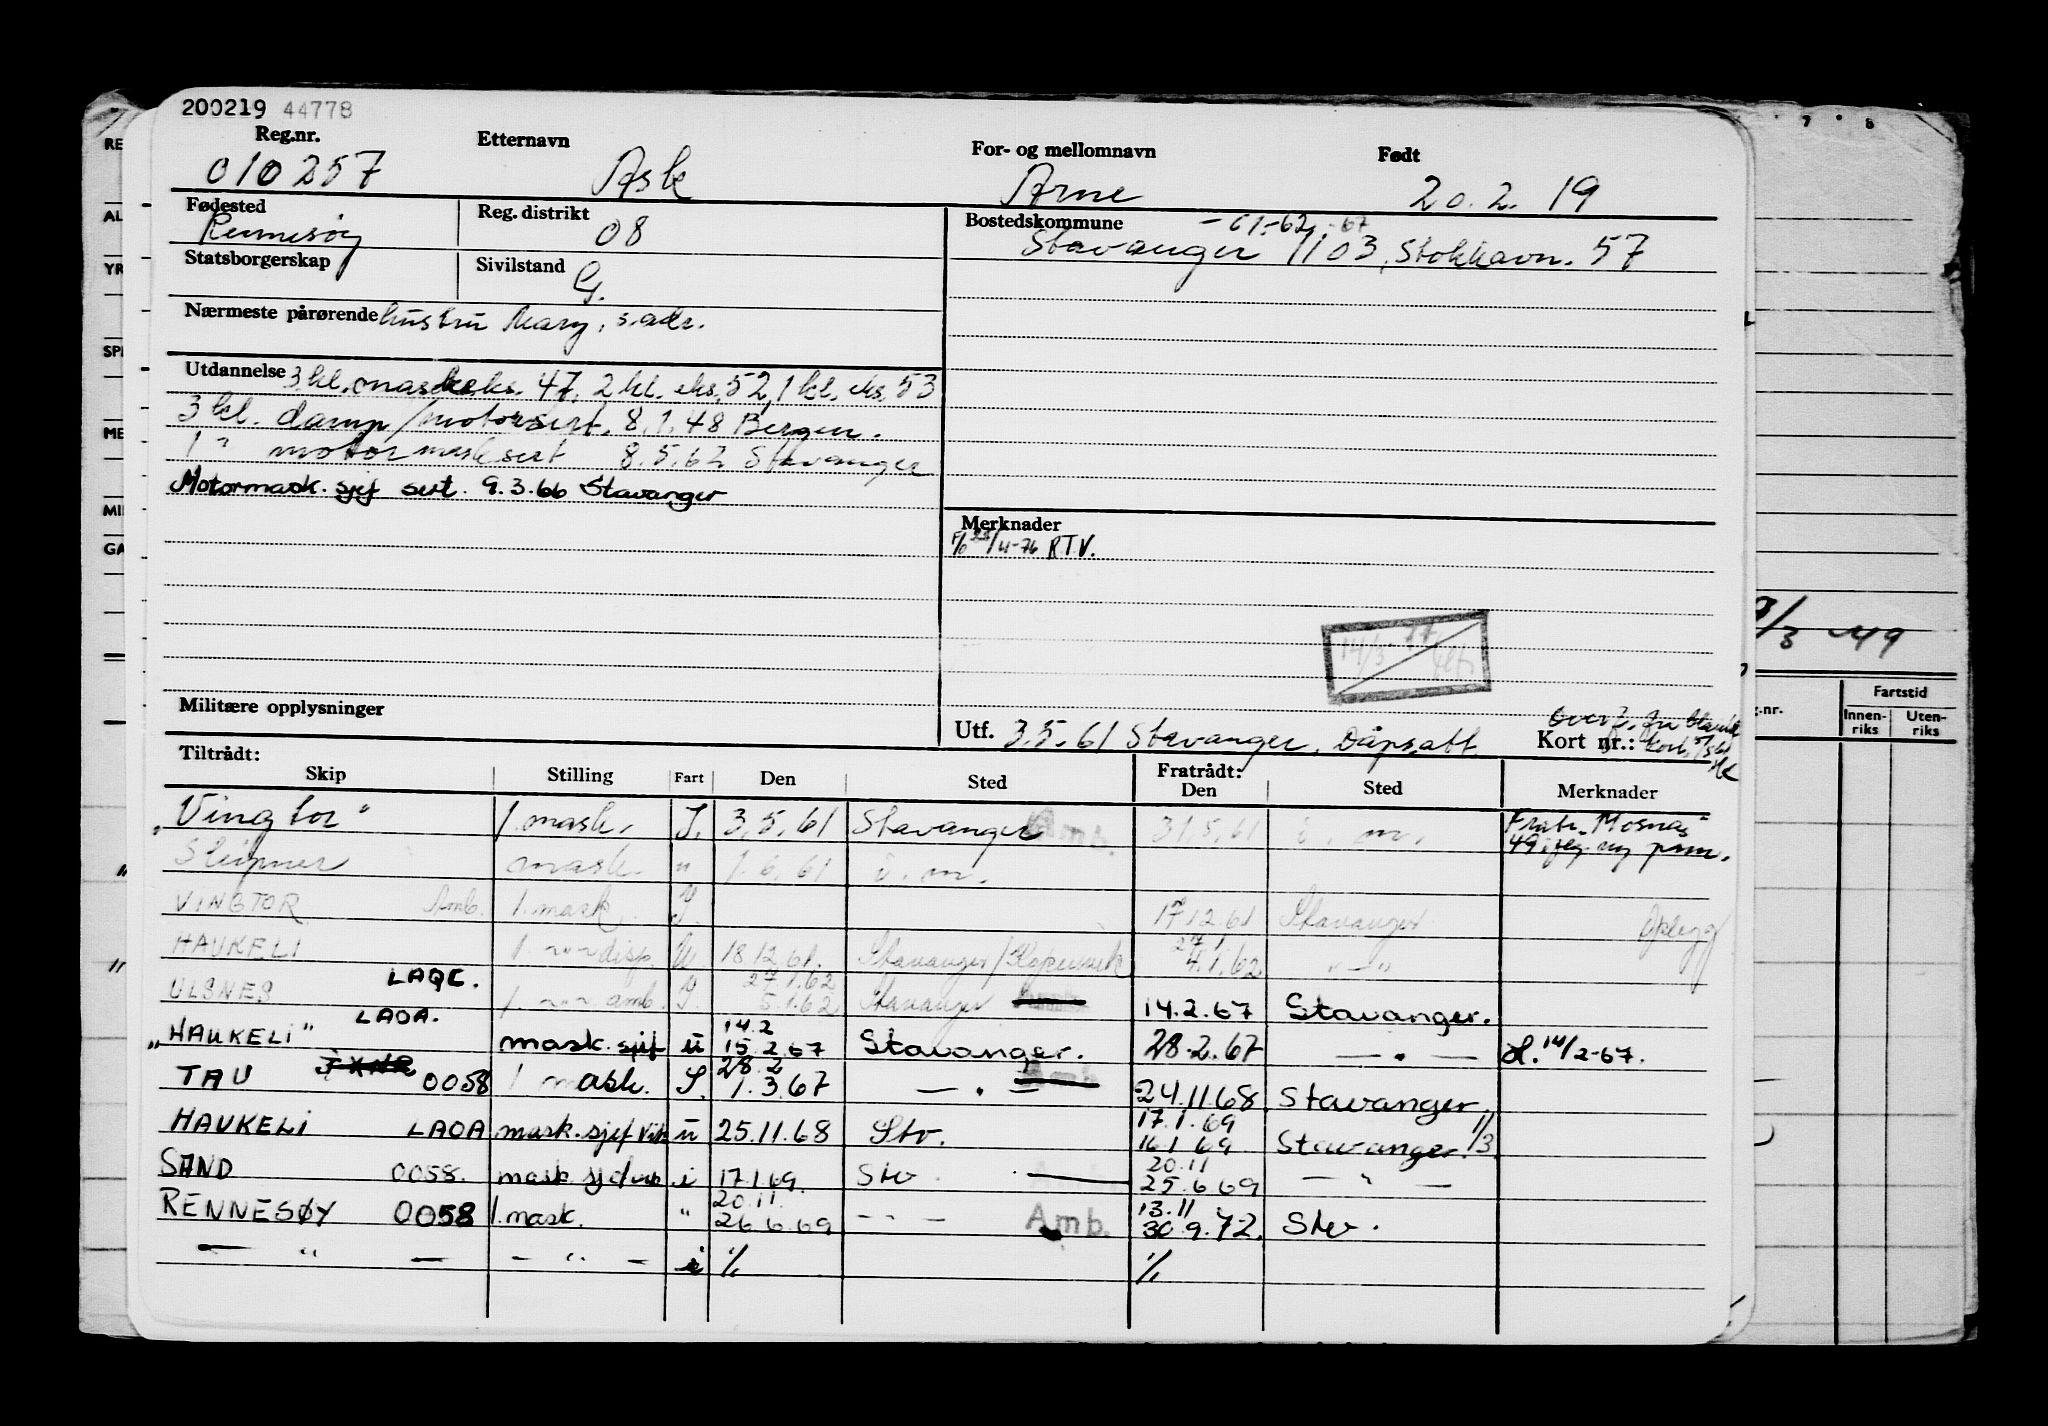 200219 44778
Reg.nr. Etternavn For- og mellomnavn Født
010257 Ask Arne 20.2.19
Fødested Reg. distrikt Bostedskommune -61-62 -67
Rennesøy 08 Stavanger 1103, Stokkavn. 57
Statsborgerskap Sivilstand
G.
Nærmeste pårørende hustru Mary, s.adr.
Utdannelse 3 kl. maskeks. 47, 2 kl. eks. 52, 1 kl. eks. 53
3 kl. damp/motorsert. 8.1.48 Bergen.
1 " motormasksert 8.5.62 Stavanger
Motormask. sjef sert. 9.3.66 Stavanger
Merknader
F/o 23/4-76 R.T.V.
14/3-77
9/3-49
Militære opplysninger
Utf. 3.5.61 Stavanger, Dåpsatt.
Kort nr.:
Tiltrådt: Fratrådt:
Skip Stilling Fart Den Sted Den Sted Merknader
"Vingtor" 1. mask. I. 3.5.61 Stavanger Amb. 31.5.61 i. m. Fratr. "Mosnas"
49
Sleipner mask. " 1.6.61 i. m.
VINGTOR Amb. 1. mask. I. 17.12.61 Stavanger Opplegg
HAUKELI 1. disp. U. 18.12.61. Stavanger/Kopervik 27.1
4.1.62 — " —
27.1.62
ULSNES LAQC. 1. amb. I. 5.1.62 Stavanger 14.2.67 Stavanger.
14.2
"HAUKELI" LAOA. mask. sjef u 15.2.67 Stavanger. 28.2.67 — " — 14/2-67.
28.2
TAU 0058 1 mask. I. 1.3.67 — " — 24.11.68 Stavanger.
17.1.69
HAUKELI LAOA mask. sjef vik u 25.11.68 Stv. 16.1.69 Stavanger. 1/3.
20.11
SAND 0058. mask. sjef vik i 17.1.69. Stv 25.6.69 — " —
20.11. 13.11
RENNESØY 0058 1. mask. " 26.6.69 — " — Amb. 30.9.72. Stv.
— " — — " — i 1/1 1/1
Fartstid
Innen-riks Uten-riks